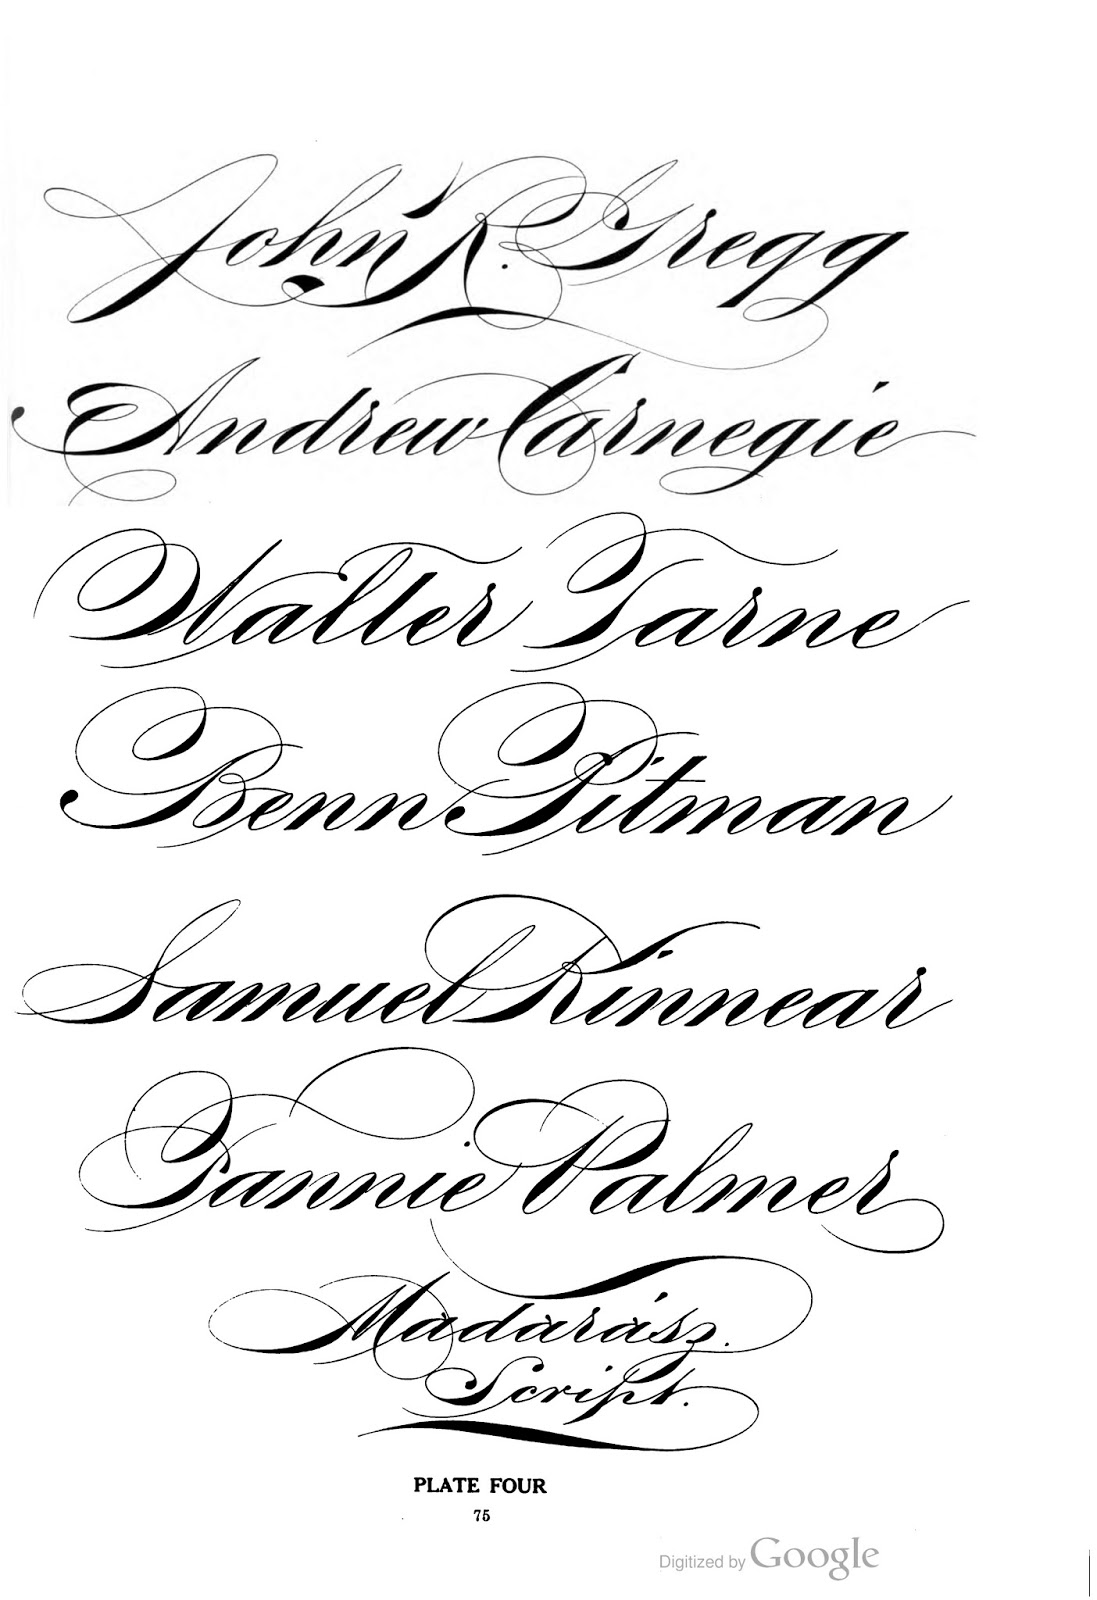 John R. Gregg
Andrew Carnegie
Walter Tarne
Benn Pitman
Samuel Kinnear
Fannie Palmer
Madarász.
Script.
PLATE FOUR
75
Digitized by Google